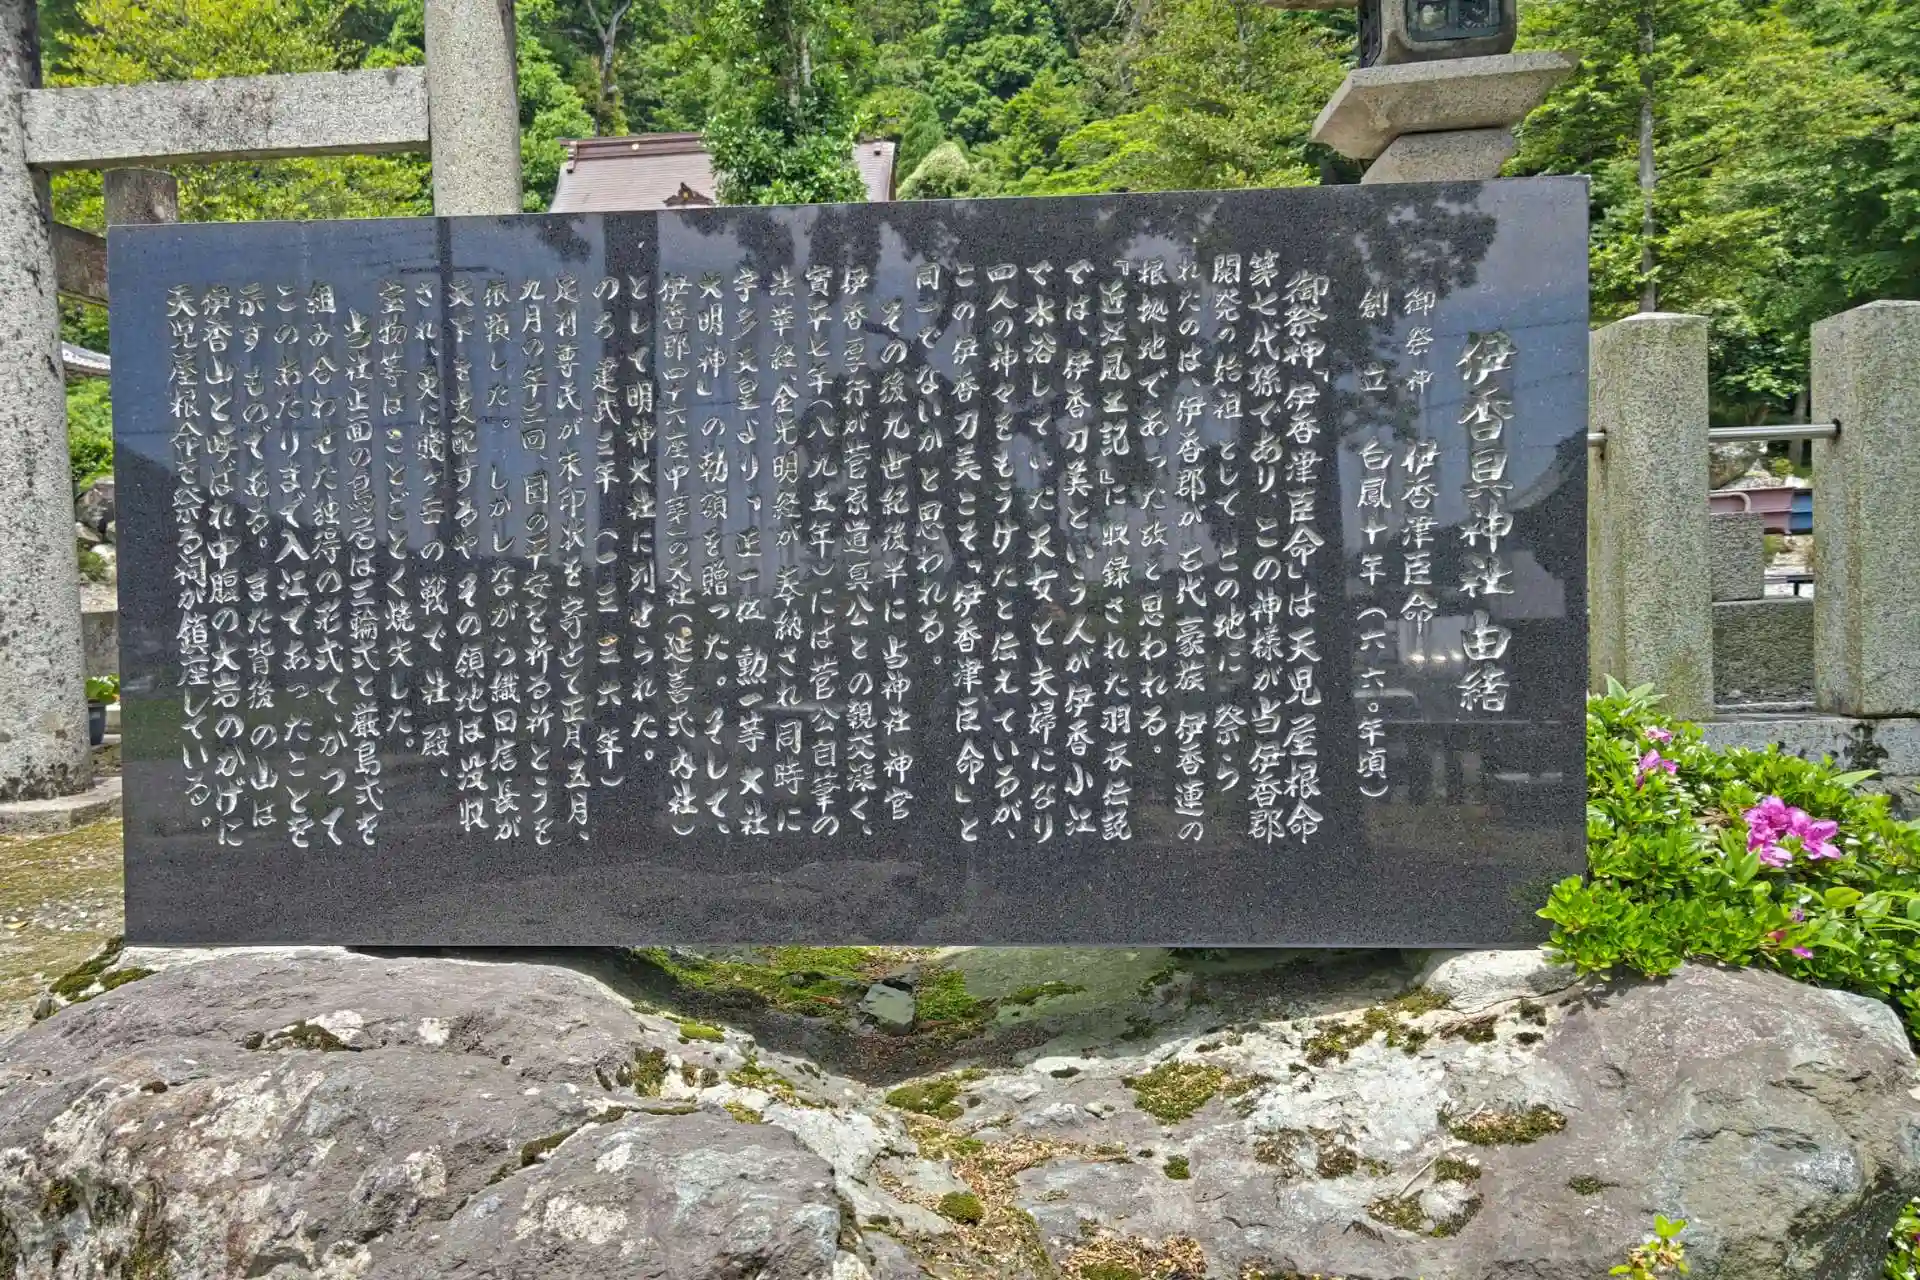 伊香具神社由緒
御祭神 伊香津臣命
創立 白鳳十年(六六〇年頃)
御祭神「伊香津臣命」は天児屋根命
第七代孫であり、この神様が当伊香郡
開発の始祖として、この地に祭ら
れたのは、伊香郡が古代豪族伊香連の
根拠地であった故と思われる。
『近江風土記』に収録された羽衣伝説
では、伊香刀美という人が伊香小江
で水浴していた天女と夫婦になり
四人の神々をもうけたと伝えているが、
この伊香刀美こそ「伊香津臣命」と
同一でないかと思われる。
その後九世紀後半に当神社神官
伊香厚行が菅原道真公との親交深く、
寛平七年(八九五年)には菅公自筆の
法華経金光明経が奉納され同時に
宇多天皇より、正一位勲一等大社
大明神」の勅額を賜った。そして、
伊香郡四十六座中第一の大社(延喜式内社)
として明神大社に列せられた。
のち建武三年(一三三六年)
足利尊氏が朱印状を寄せて正月、五月、
九月の年三回、国の平安を祈る祈とうを
依頼した。しかしながら織田信長が
天下を支配するやその領地は没収
され、更に賤ヶ岳の戦で社殿、
宝物等はことごとく焼失した。
当社正面の鳥居は三輪式と厳島式を
組み合わせた独得の形式で、かつて
このあたりまで入江であったことを
示すものである。また背後の山は
伊香山と呼ばれ中腹の大岩のかげに
天児屋根命を祭る祠が鎮座している。